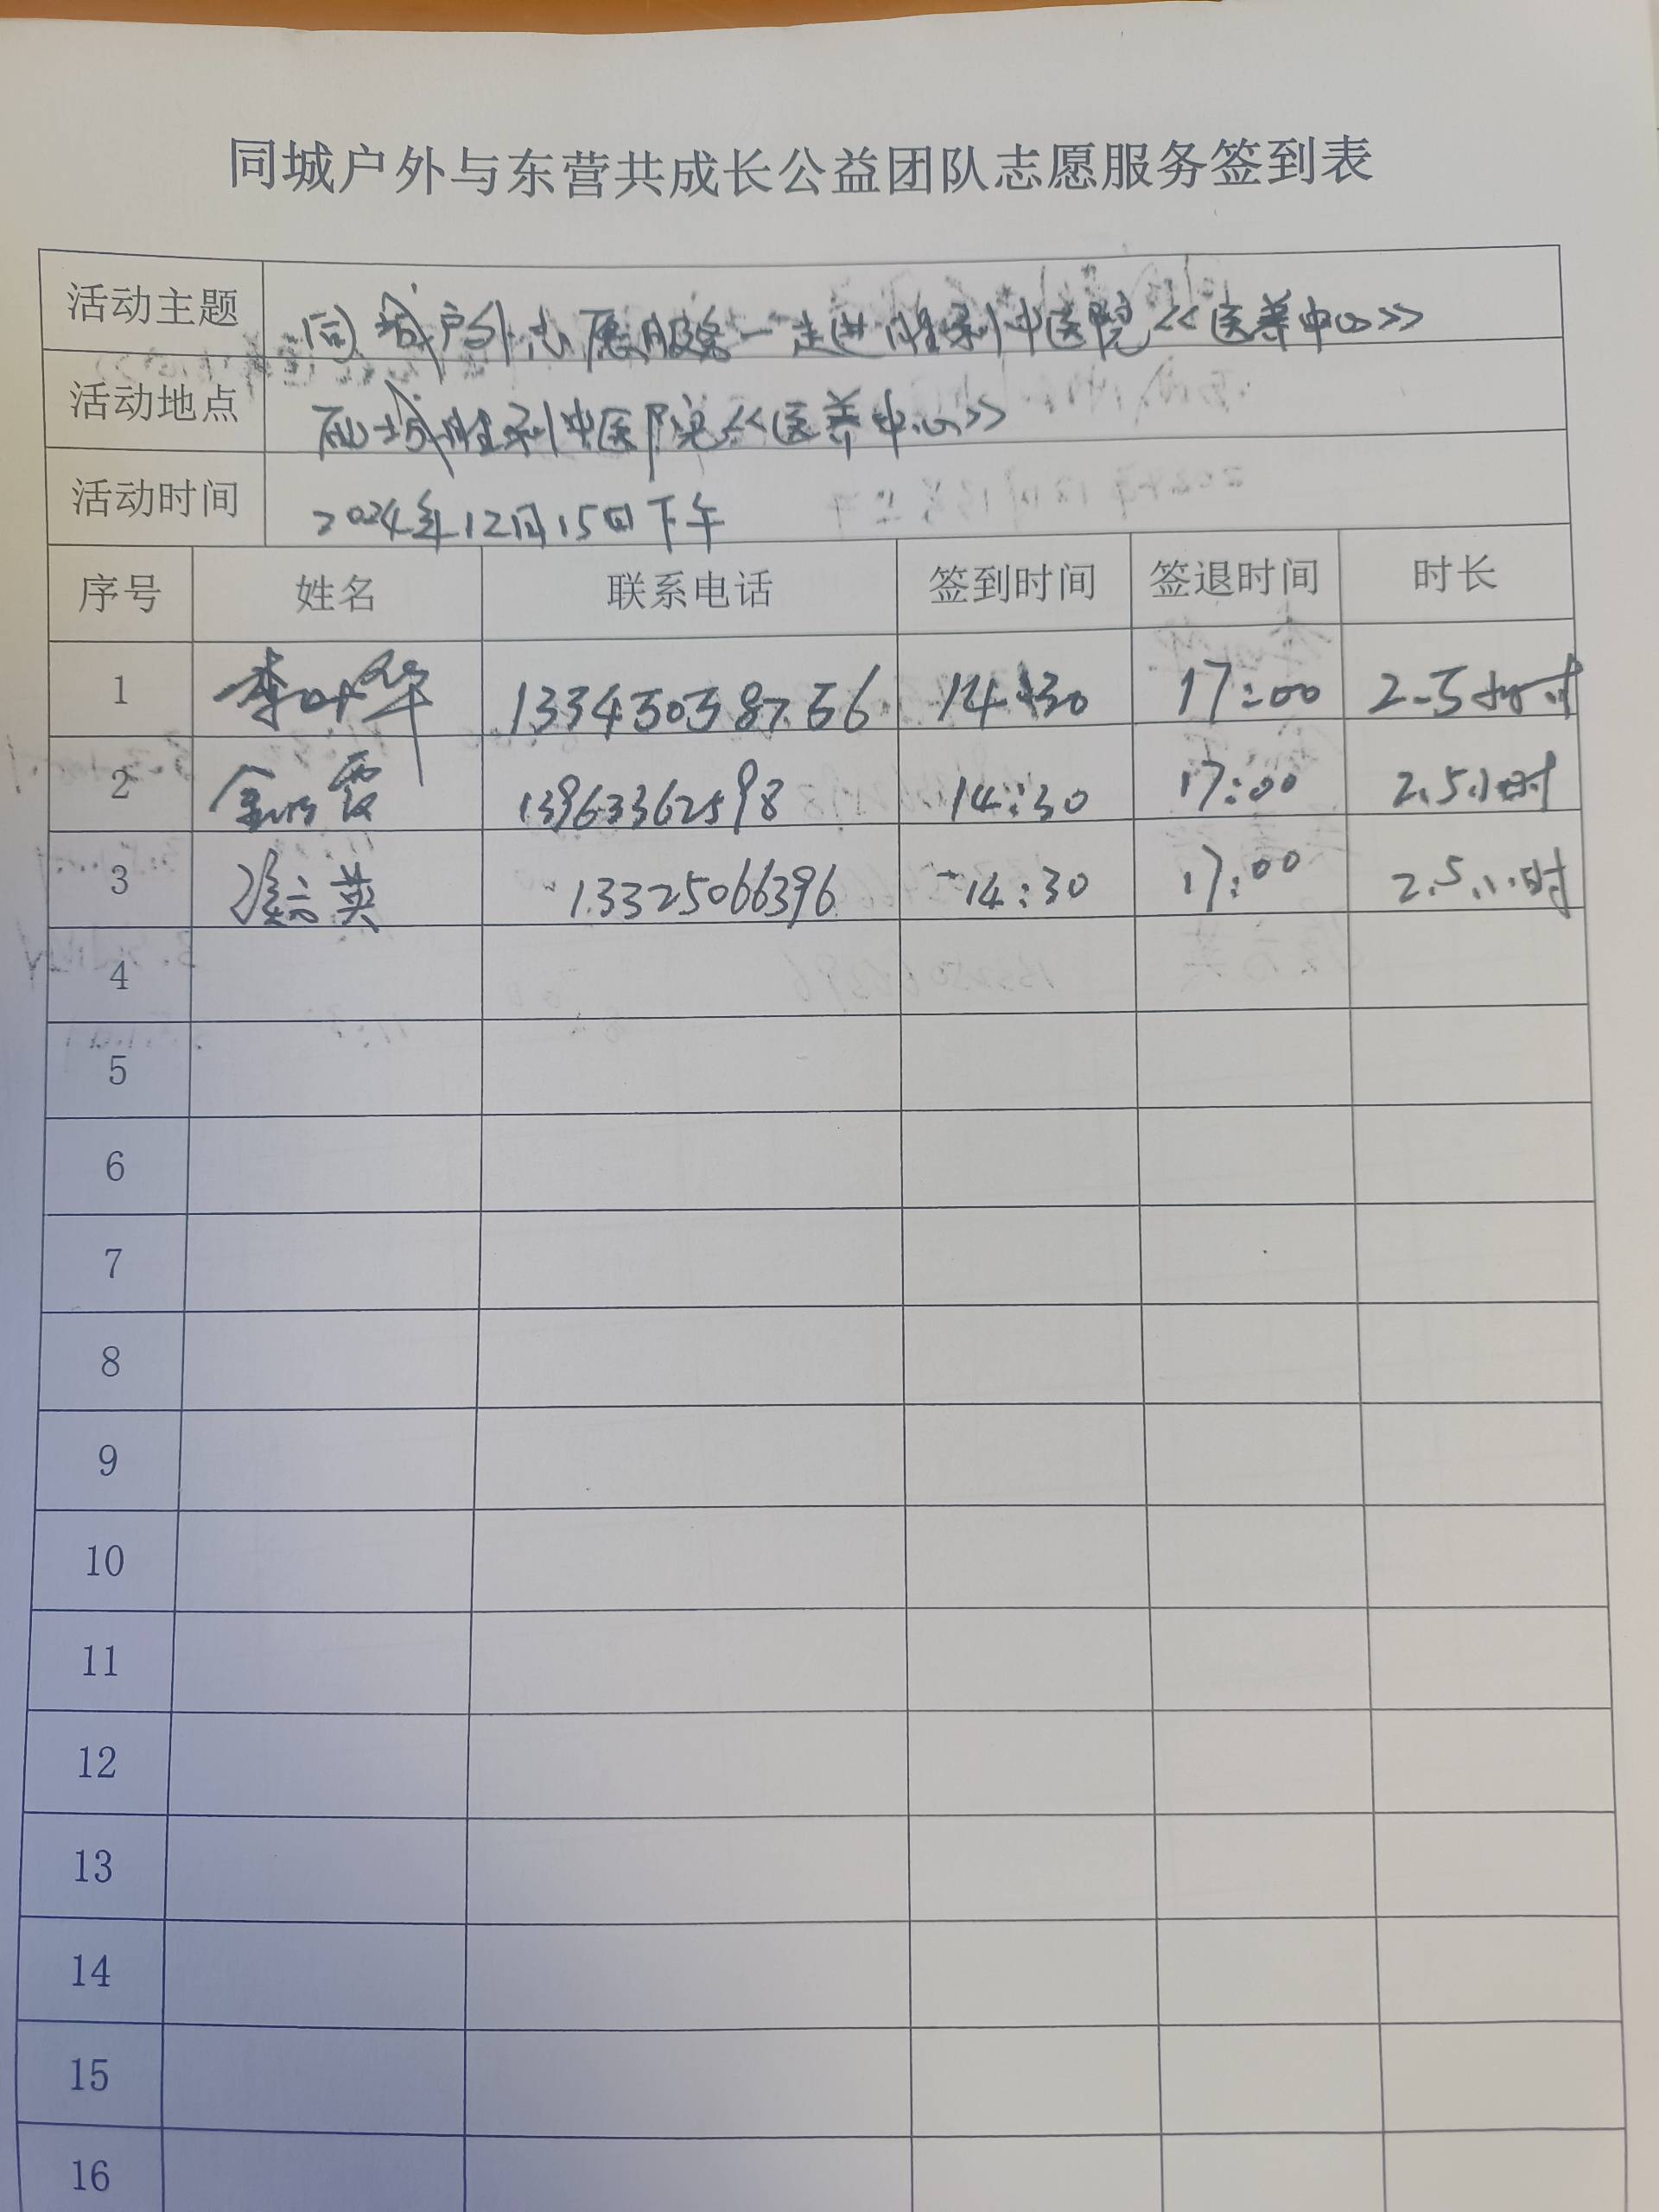 同城户外与东营共成长公益团队志愿服务签到表
活动主题 同城户外志愿服务一走进胜利中医院<<医养中心>>
活动地点 西城胜利中医院<<医养中心>>
活动时间 2024年12月15日下午
序号 姓名 联系电话 签到时间 签退时间 时长
1 李叶华 14:30 17:00 2.5小时
2 13963362598 14:30 17:00 2.5小时
3 13325066396 14:30 17:00 2.5小时
4
5
6
7
8
9
10
11
12
13
14
15
16